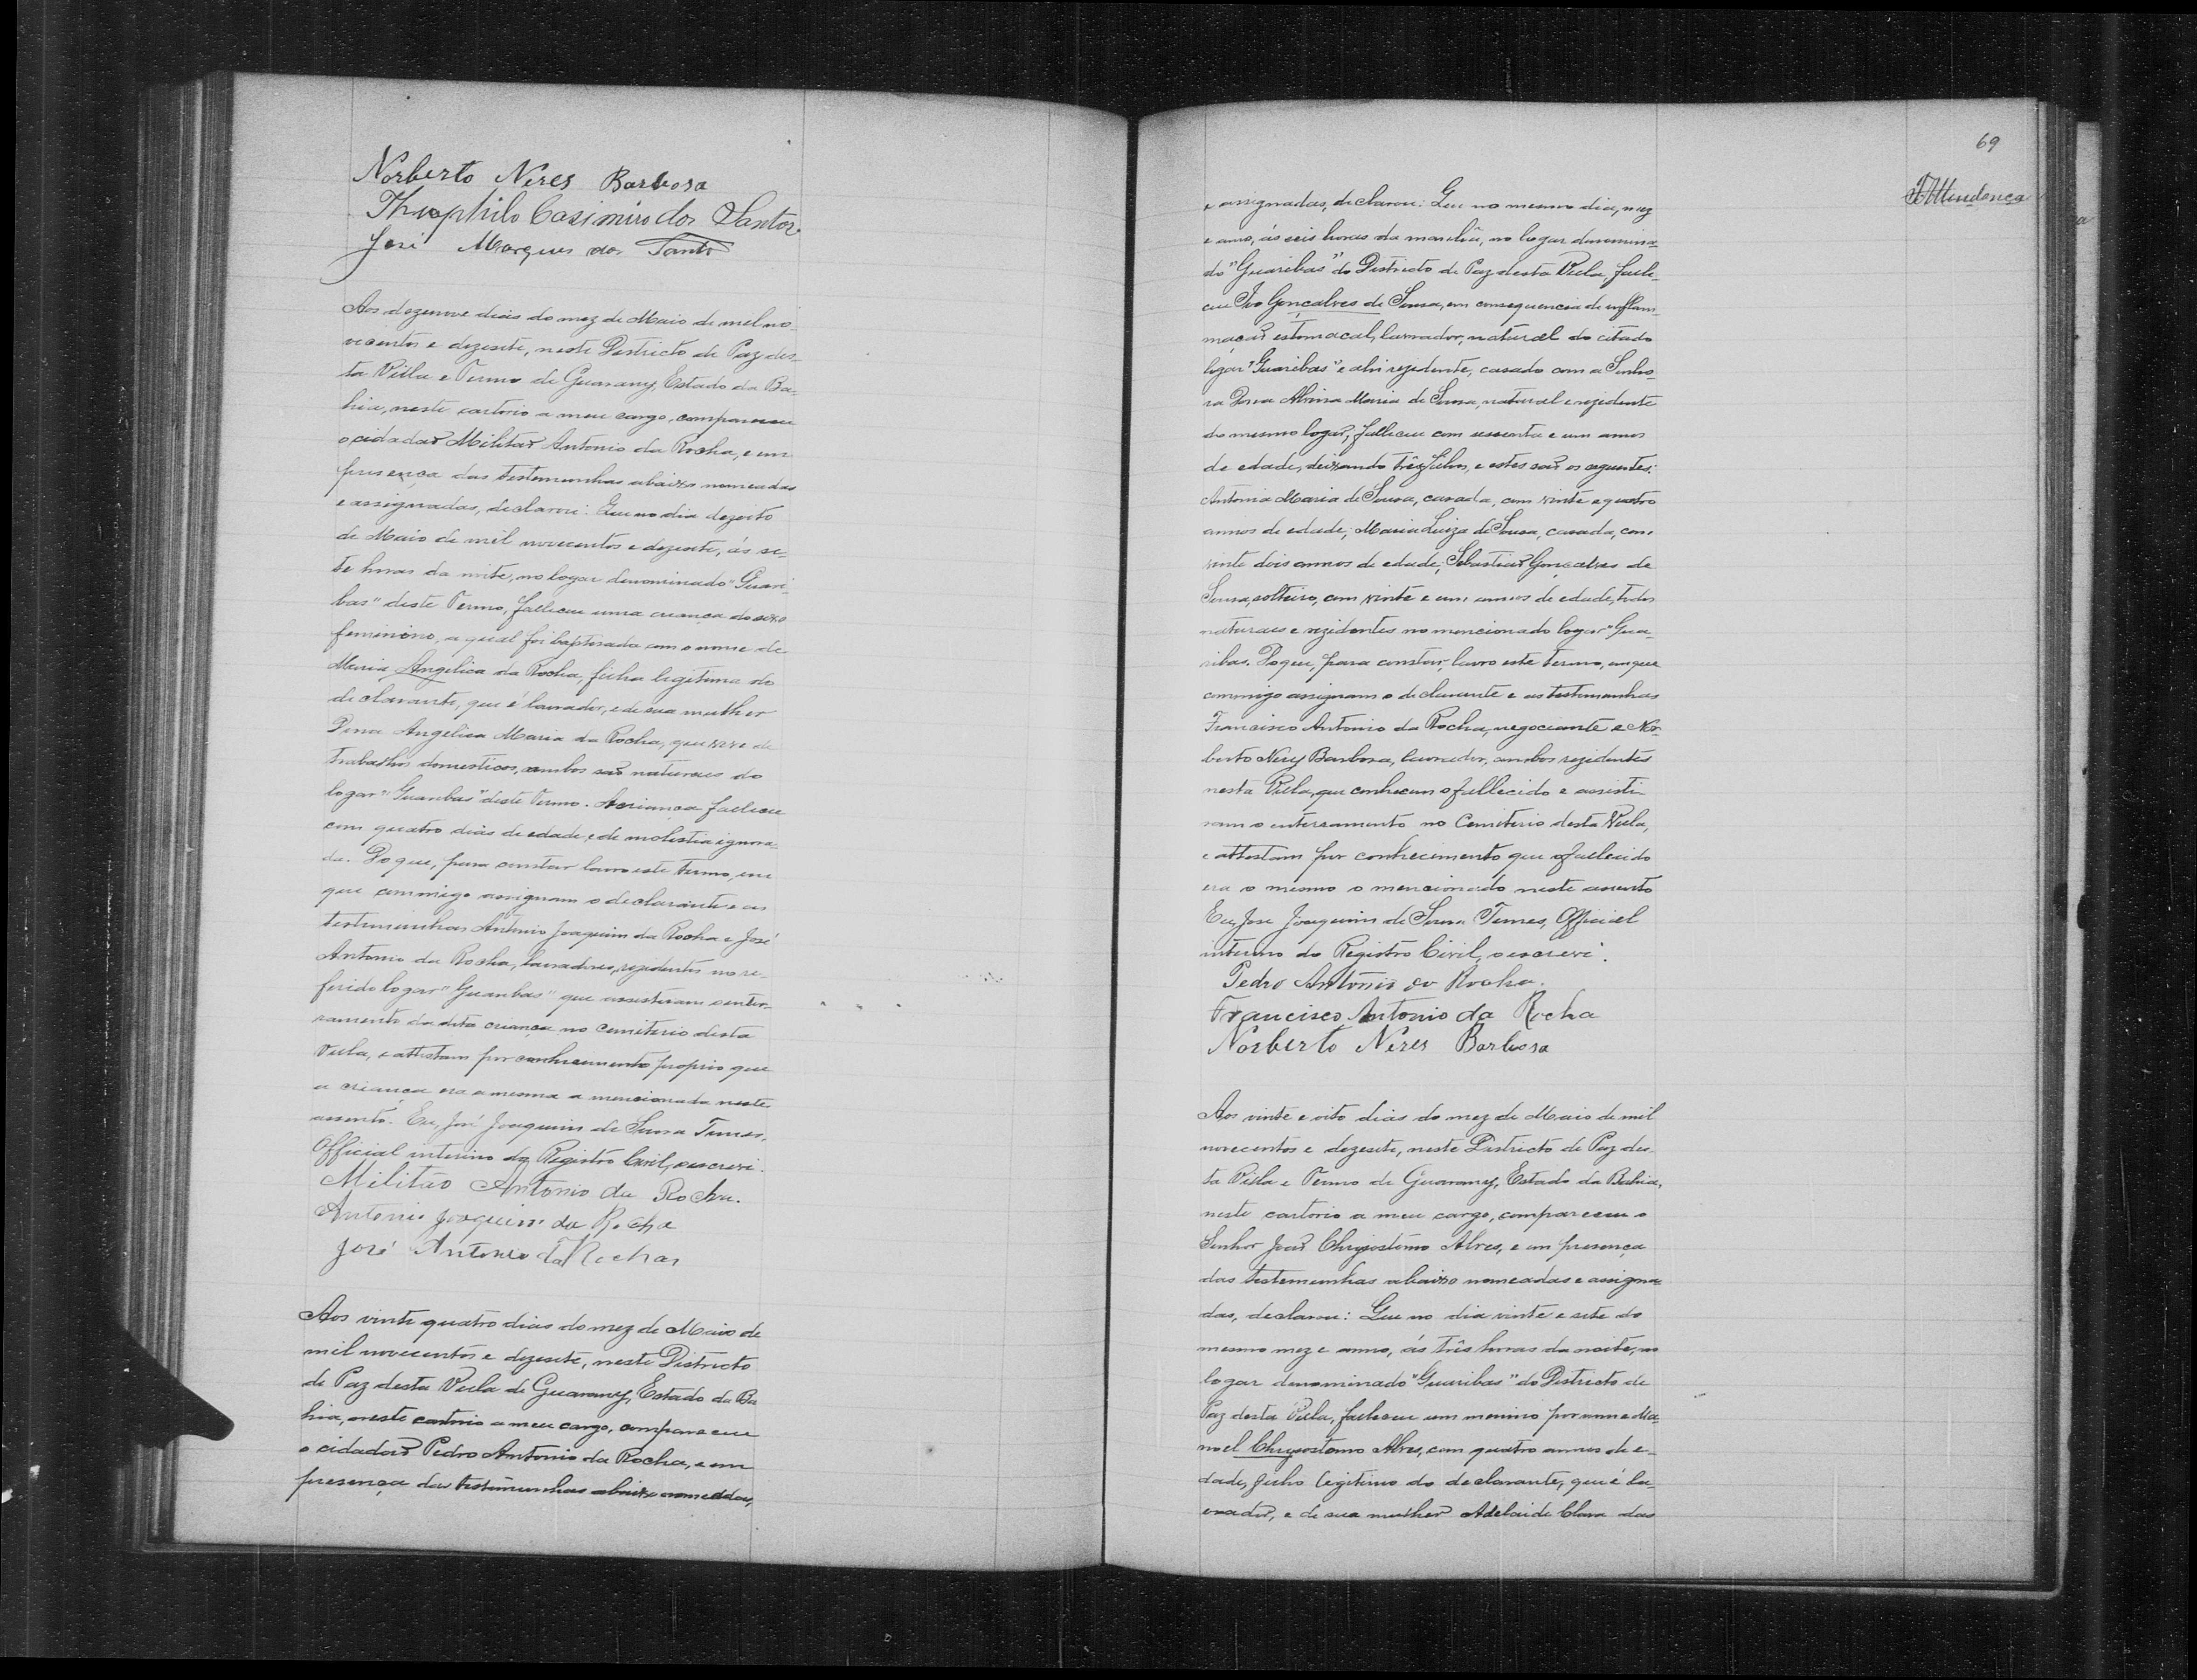 Norberto Neres Barbosa
Theophilo Casimiro dos Santos
José Marques dos Santos
Aos dezenove dias do mez de Maio de mil no-
vecentos e dezesete, neste Districto de Paz des-
ta Villa e Termo de Guarany, Estado da Ba-
hia, neste cartorio a meu cargo, compareceu
o cidadão Militão Antonio da Rocha, e em
presença das testemunhas abaixo nomeadas
e assignadas, declarou: Que no dia dezoito
de Maio de mil novecentos e dezesete, ás se-
te horas da noite, no logar denominado "Guari-
bas" deste Termo, falleceu uma criança do sexo
feminino, a qual foi baptisada com o nome de
Maria Angelica da Rocha, filha legitima do
declarante, que é lavrador, e de sua mulher
Dona Angelica Maria da Rocha, que vive de
trabalhos domesticos, ambos são naturaes do
logar "Guaribas" deste Termo. A criança falleceu
com quatro dias de edade, e de molestia ignora-
da. Do que, para constar lavro este termo, em
que commigo assignam o declarante e as
testemunhas Antonio Joaquim da Rocha e José
Antonio da Rocha, lavradores, rezidentes no re-
ferido logar "Guaribas" que assistiram o enter-
ramento da dita criança no cemiterio desta
Villa, e attestam por conhecimento proprio que
a criança era a mesma a mencionada neste
assento. Eu, José Joaquim de Sousa Temes,
Official interino do Registro Civil, o escrevi.
Militão Antonio da Rocha.
Antonio Joaquim da Rocha
José Antonio da Rochas
Aos vinte quatro dias do mez de Maio de
mil novecentos e dezesete, neste Districto
de Paz desta Villa de Guarany, Estado da Ba
hia, neste cartorio a meu cargo, compareceu
o cidadão Pedro Antonio da Rocha, e em
presença das testemunhas abaixo nomeadas,
69
e assignadas, declarou: Que no mesmo dia, mez
e anno, ás seis horas da manhã, no logar denomina-
do "Guaribas" do Districto de Paz desta Villa, falle-
ceu Ivo Gonçalves de Sousa, em consequencia de inflam-
mação estomacal, lavrador, natural do citado
logar "Guaribas" e ahi rezidente, casado com a Senho-
ra Dona Maria de Sousa, natural e rezidente
do mesmo logar, falleceu com sessenta e um annos
de edade, deixando três filhos, e estes são os seguintes:
Antonia Maria de Sousa, casada, com vinte e quatro
annos de edade; Maria Luiza de Sousa, casada, com
vinte dois annos de edade; Sebastião Gonçalves de
Sousa, solteiro, com vinte e um annos de edade, todos
naturaes e rezidentes no mencionado logar "Gua-
ribas. Do que, para constar, lavro este termo, em que
commigo assignam o declarante e as testemunhas
Francisco Antonio da Rocha, negociante e Nor-
berto Nery Barbosa, lavrador, ambos rezidentes
nesta Villa, que conheciam o fallecido e assisti-
ram o enterramento no Cemiterio desta Villa,
e attestam por conhecimento que o fallecido
era o mesmo o mencionado neste assento
Eu, José Joaquim de Sousa Temes, Official
interino do Registro Civil, o escrevi.
Pedro Antonio da Rocha.
Francisco Antonio da Rocha
Norberto Neres Barbosa
Aos vinte e oito dias do mez de Maio de mil
novecentos e dezesete, neste Districto de Paz des-
ta Villa e Termo de Guarany, Estado da Bahia,
neste cartorio a meu cargo, compareceu o
Senhor João Chrysostomo Alves, e em presença
das testemunhas abaixo nomeadas e assigna-
das, declarou: Que no dia vinte e sete do
mesmo mez e anno, ás três horas da noite, no
logar denominado "Guaribas" do Districto de
Paz desta Villa, falleceu um menino por nome Ma-
noel Chrysostomo Alves, com quatro annos de e-
dade, filho legitimo do declarante, que é la-
vrador, e de sua mulher Adelaide Clara das